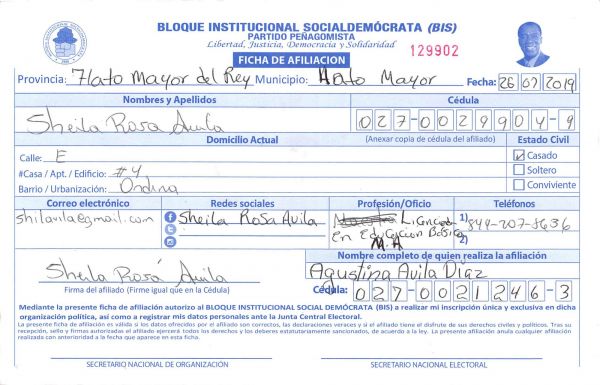 BLOQUE INSTITUCIONAL SOCIALDEMÓCRATA (BIS)
PARTIDO PEÑAGOMISTA
Libertad, Justicia, Democracia y Solidaridad
129902
FICHA DE AFILIACION
Provincia: Hato Mayor del Rey Municipio: Hato Mayor Fecha: 26 07 2019
Nombres y Apellidos Cédula
Sheila Rosa Avila 027-0029904-9
Domicilio Actual (Anexar copia de cédula del afiliado) Estado Civil
Calle: E Casado
#Casa / Apt. / Edificio: #4 Soltero
Barrio / Urbanización: Ondina Conviviente
Correo electrónico Redes sociales Profesión/Oficio Teléfonos
shilavila@gmail.com Sheila Rosa Avila Licenciada 1) 849-207-8636
En Educacion Basica 2)
M.A
Nombre completo de quien realiza la afiliación
Sheila Rosá Avila Agustina Avila Díaz
Firma del afiliado (Firme igual que en la Cédula) Cédula: 027-0021246-3
Mediante la presente ficha de afiliación autorizo al BLOQUE INSTITUCIONAL SOCIAL DEMÓCRATA (BIS) a realizar mi inscripción única y exclusiva en dicha
organización política, así como a registrar mis datos personales ante la Junta Central Electoral.
La presente ficha de afiliación es válida si los datos ofrecidos por el afiliado son correctos, las declaraciones veraces y si el afiliado tiene el disfrute de sus derechos civiles y políticos. Tras su
recepción, sello y firmas autorizadas el afiliado ejercerá todos los derechos y los deberes estatutariamente sancionados, de acuerdo a la ley. La presente afiliación anula cualquier afiliación
realizada con anterioridad a la fecha que consta en el presente documento.
SECRETARIO NACIONAL DE ORGANIZACIÓN SECRETARIO NACIONAL ELECTORAL